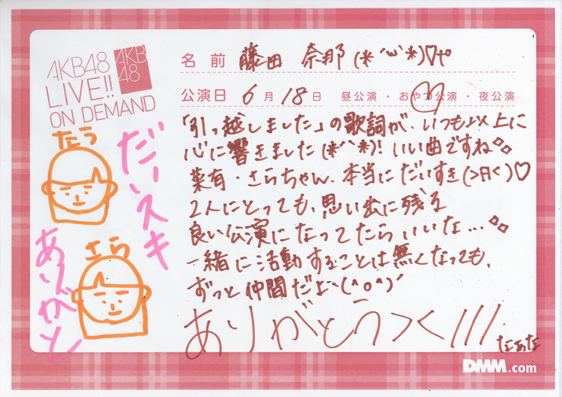 AKB48
LIVE!!
ON DEMAND
AKB
48
名前 藤田 奈那(*˘︶˘*)♡
公演日 6月18日 昼公演・おやつ公演・夜公演
「引っ越しました」の歌詞が、いつも以上に
心に響きました(*^^*)! いい曲ですね
菜有・さらちゃん、本当にだいすき(>月<)♡
2人にとっても、思い出に残る
良い公演になってたらいいな…
一緒に活動することは無くなっても、
ずっと仲間だよ(^o^)
ありがとうつく///
なぁな
たう
だいスキ
さら
ありがと
DMM.com